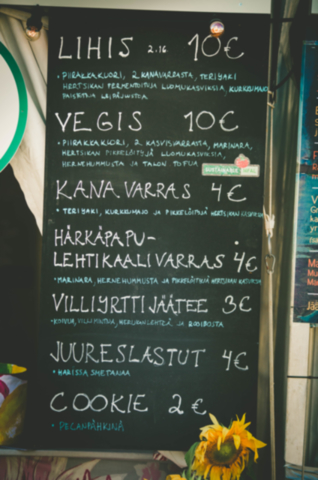 LIHIS 2.16 10€
• PIIRAKKAKUORI, 2 KANAVARRASTA, TERIYAKI
HERTSIKAN FERMENTOITUJA LUOMUKASVIKSIA, KURKKUMAJO
VEGIS 10€
• PIIRAKKAKUORI, 2 KASVISVARRASTA, MARINARA,
HERTSIKAN PIKKELÖITYJÄ LUOMUKASVIKSIA,
HERNEHUMMUSTA JA TALON TOFUA
KANAVARRAS 4€
• TERIYAKI, KURKKUMAJO JA PIKKELÖITYJÄ HERTSIKAN KASVIKSIA
HÄRKÄPAPU-
LEHTIKAALIVARRAS 4€
• MARINARA, HERNEHUMMUSTA JA PIKKELÖITYJÄ HERTSIKAN KASVIKSIA
VILLIYRTTIJÄÄTEE 3€
JA ROOIBOSTA
JUURESLASTUT 4€
• HARISSA SMETANAA
COOKIE 2€
• PECANPÄHKINÄ